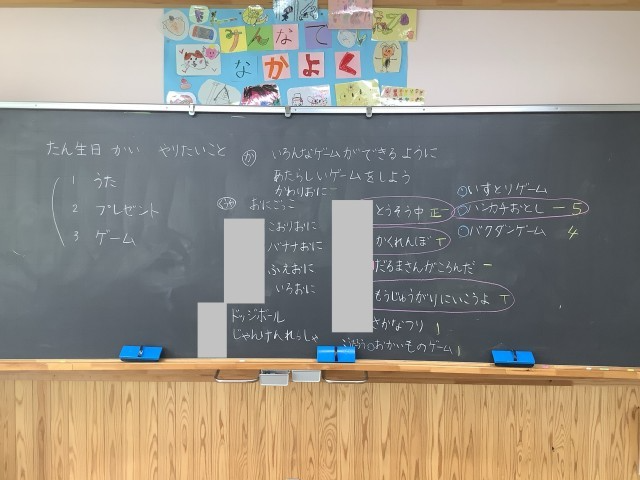 みんなで
なかよく
たん生日 かい やりたいこと
1 うた
2 プレゼント
3 ゲーム
か いろんなゲームができるように
あたらしいゲームをしよう
かわりおに
おにごっこ
こおりおに
バナナおに
ふえおに
いろおに
ドッジボール
じゃんけんれっしゃ
とうそう中 正一
かくれんぼ T
だるまさんがころんだ 一
もうじゅうがりにいこうよ T
さかなつり 1
おかいものゲーム 1
いすとりゲーム
ハンカチおとし 一 5
バクダンゲーム 4